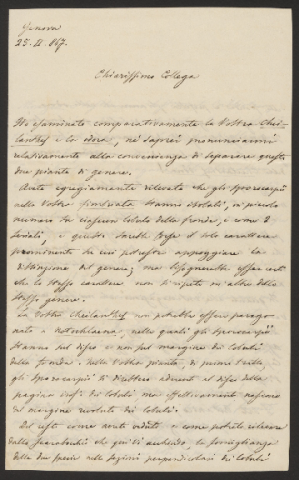 Genova
25. II. 867.
Chiarissimo Collega
Ho esaminato comparativamente la Vostra Chei-
lanthes e la odora, nè saprei pronunciarmi
relativamente alla convenienza di separare queste
due piante di genere.
Avete egregiamente rilevato che gli sporocarpii
nella Vostra fimbriata stanno isolati, in piccolo
numero su ciascun lobulo della fronda, e come
e questo sarebbe forse il solo carattere
prominente su cui potreste appoggiare la
distinzione del genere; ma bisognerebbe esser certi
che lo stesso carattere non si ripete in altre dello
stesso genere.
La Vostra Cheilanthes non potrebbe essere parago-
nata a Notochlaena, nella quale gli sporocarpii
stanno sul disco e non sul margine dei lobuli
della fronda. Nella Vostra pianta, di prima vista,
gli sporocarpii si direbbero aderenti al disco della
pagina inf. dei lobuli, ma effettivamente nascono
dal margine revoluto dei lobuli.
Del resto come avete veduto e come potrete rilevare
dallo scarabocchio che qui vi accludo, la somiglianza
delle due specie nelle sezioni perpendicolari dei lobuli